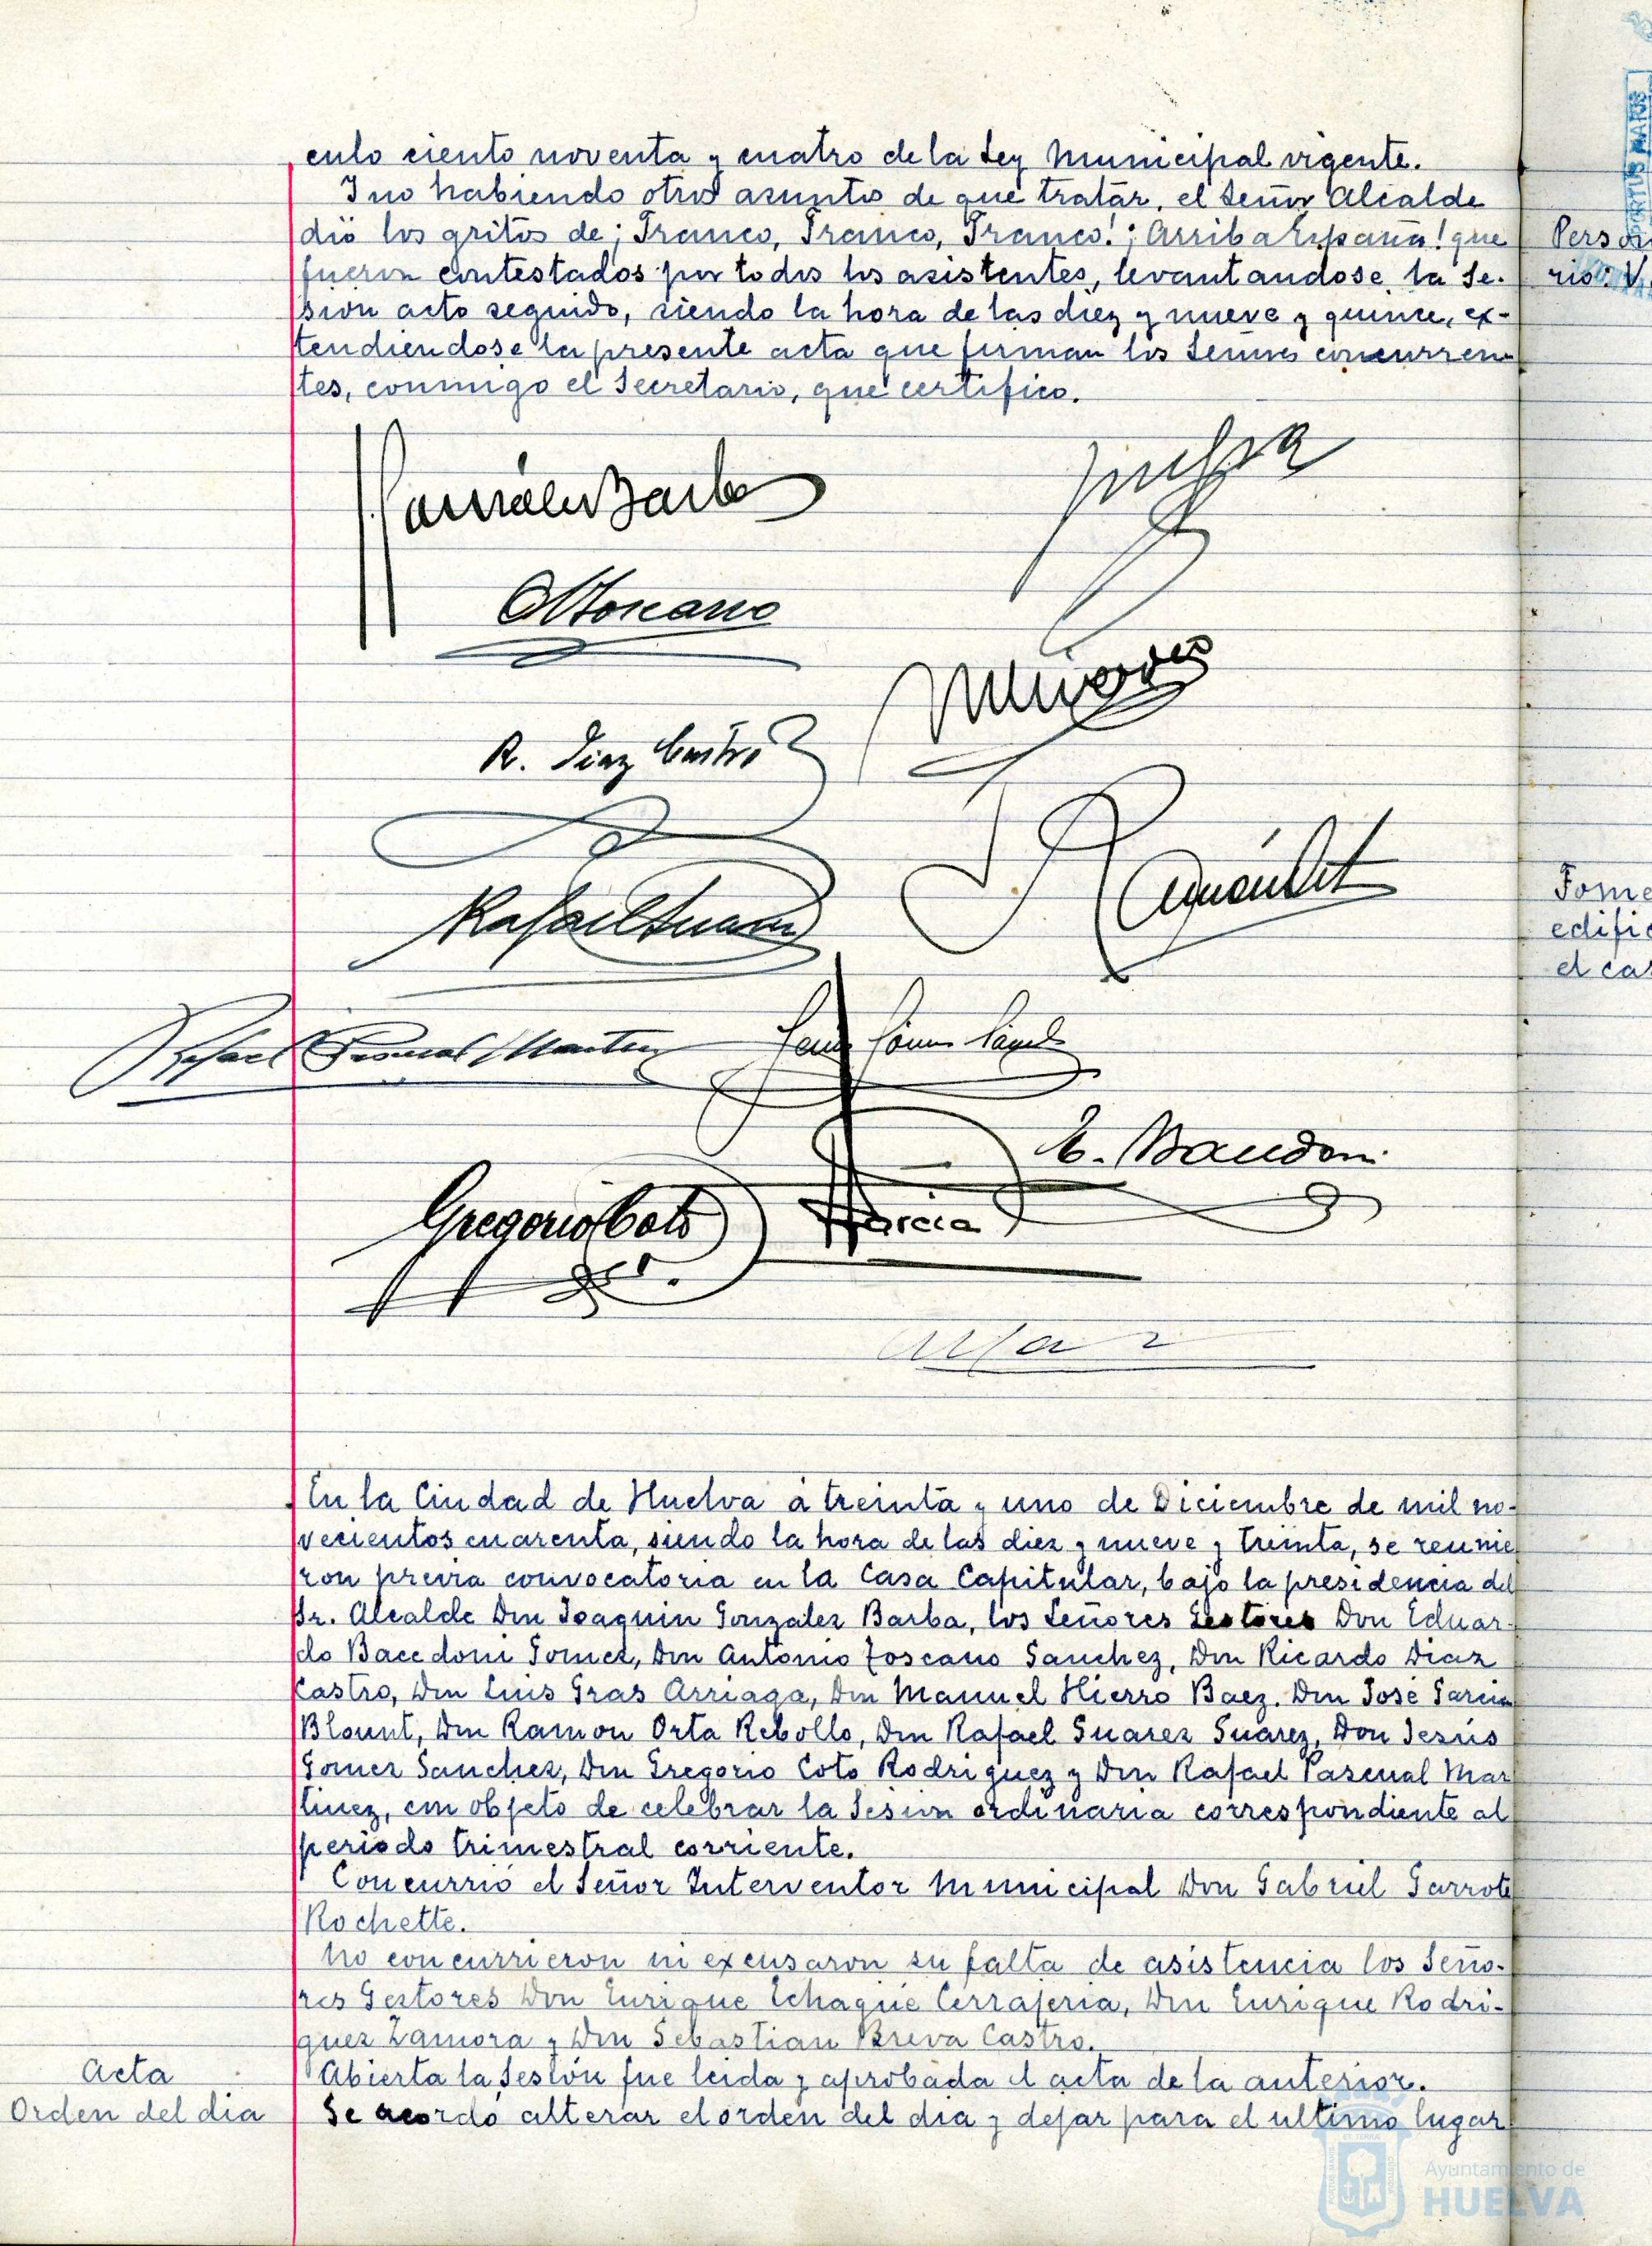 culo ciento noventa y cuatro de la Ley Municipal vigente.
Y no habiendo otros asuntos de que tratar, el Señor Alcalde
dió los gritos de ¡Franco, Franco, Franco! ¡Arriba España! que
fueron contestados por todos los asistentes, levantandose la Se-
sion acto seguido, siendo la hora de las diez y nueve y quince, ex-
tendiendose la presente acta que firman los Señores concurren-
tes, conmigo el Secretario, que certifico.
González Barba
AToscano
R. Diaz Castro
Rafael Suarez
Rafael Pascual Martinez
Jesus Gómez Sanchez
E. Bacedoni
Gregorio Coto
Garcia
En la Ciudad de Huelva á treinta y uno de Diciembre de mil no-
vecientos cuarenta, siendo la hora de las diez y nueve y treinta, se reunie
ron previa convocatoria en la Casa Capitular, bajo la presidencia del
Sr. Alcalde Don Joaquin Gonzalez Barba, los Señores Gestores Don Eduar-
do Bacedoni Gomez, Don Antonio Toscano Sanchez, Don Ricardo Diaz
Castro, Don Luis Gras Arriaga, Don Manuel Hierro Baez. Don José Garcia
Blount, Don Ramon Orta Rebollo, Don Rafael Suarez Suarez, Don Jesús
Gomez Sanchez, Don Gregorio Coto Rodriguez y Don Rafael Pascual Mar
tinez, con objeto de celebrar la Sesion ordinaria correspondiente al
periodo trimestral corriente.
Concurrió el Señor Interventor Municipal Don Gabriel Garrote
Rochette.
No concurrieron ni excusaron su falta de asistencia los Seño-
res Gestores Don Enrique Echagüe Cerrajeria, Don Enrique Rodri-
guez Zamora y Don Sebastian Breva Castro.
Acta
Abierta la Sesión fue leida y aprobada el acta de la anterior.
Orden del dia
Se acordó alterar el orden del dia y dejar para el ultimo lugar
Fome
edific
el cas
Ayuntamiento de
HUELVA